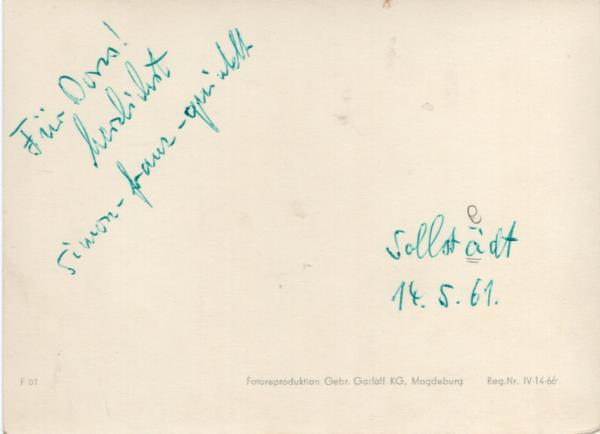 Für Doris!
herzlichst
simon-franz-quintett
e
Sollstädt
14. 5. 61.
F 07 Fotoreproduktion Gebr. Garloff KG, Magdeburg Reg.Nr. IV-14-66